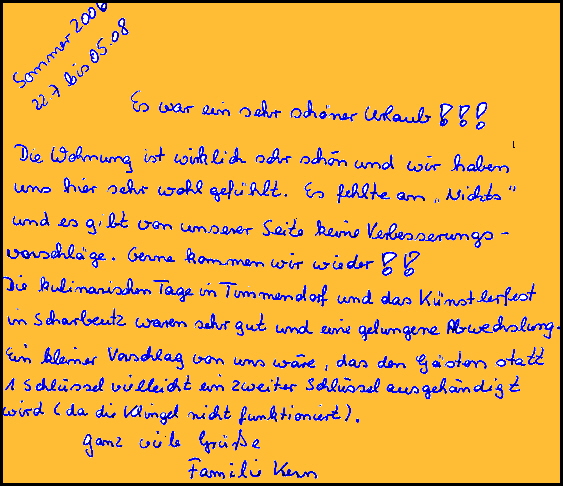 Sommer 2006
22.7 bis 05.08
Es war ein sehr schöner Urlaub!!!
Die Wohnung ist wirklich sehr schön und wir haben
uns hier sehr wohl gefühlt. Es fehlte an „Nichts“
und es gibt von unserer Seite keine Verbesserungs-
vorschläge. Gerne kommen wir wieder!!
Die kulinarischen Tage in Timmendorf und das Künstlerfest
in Scharbeutz waren sehr gut und eine gelungene Abwechslung.
Ein kleiner Vorschlag von uns wäre, das den Gästen statt
1 Schlüssel vielleicht ein zweiter Schlüssel ausgehändigt
wird (da die Klingel nicht funktioniert).
ganz viele Grüße
Familie Kern